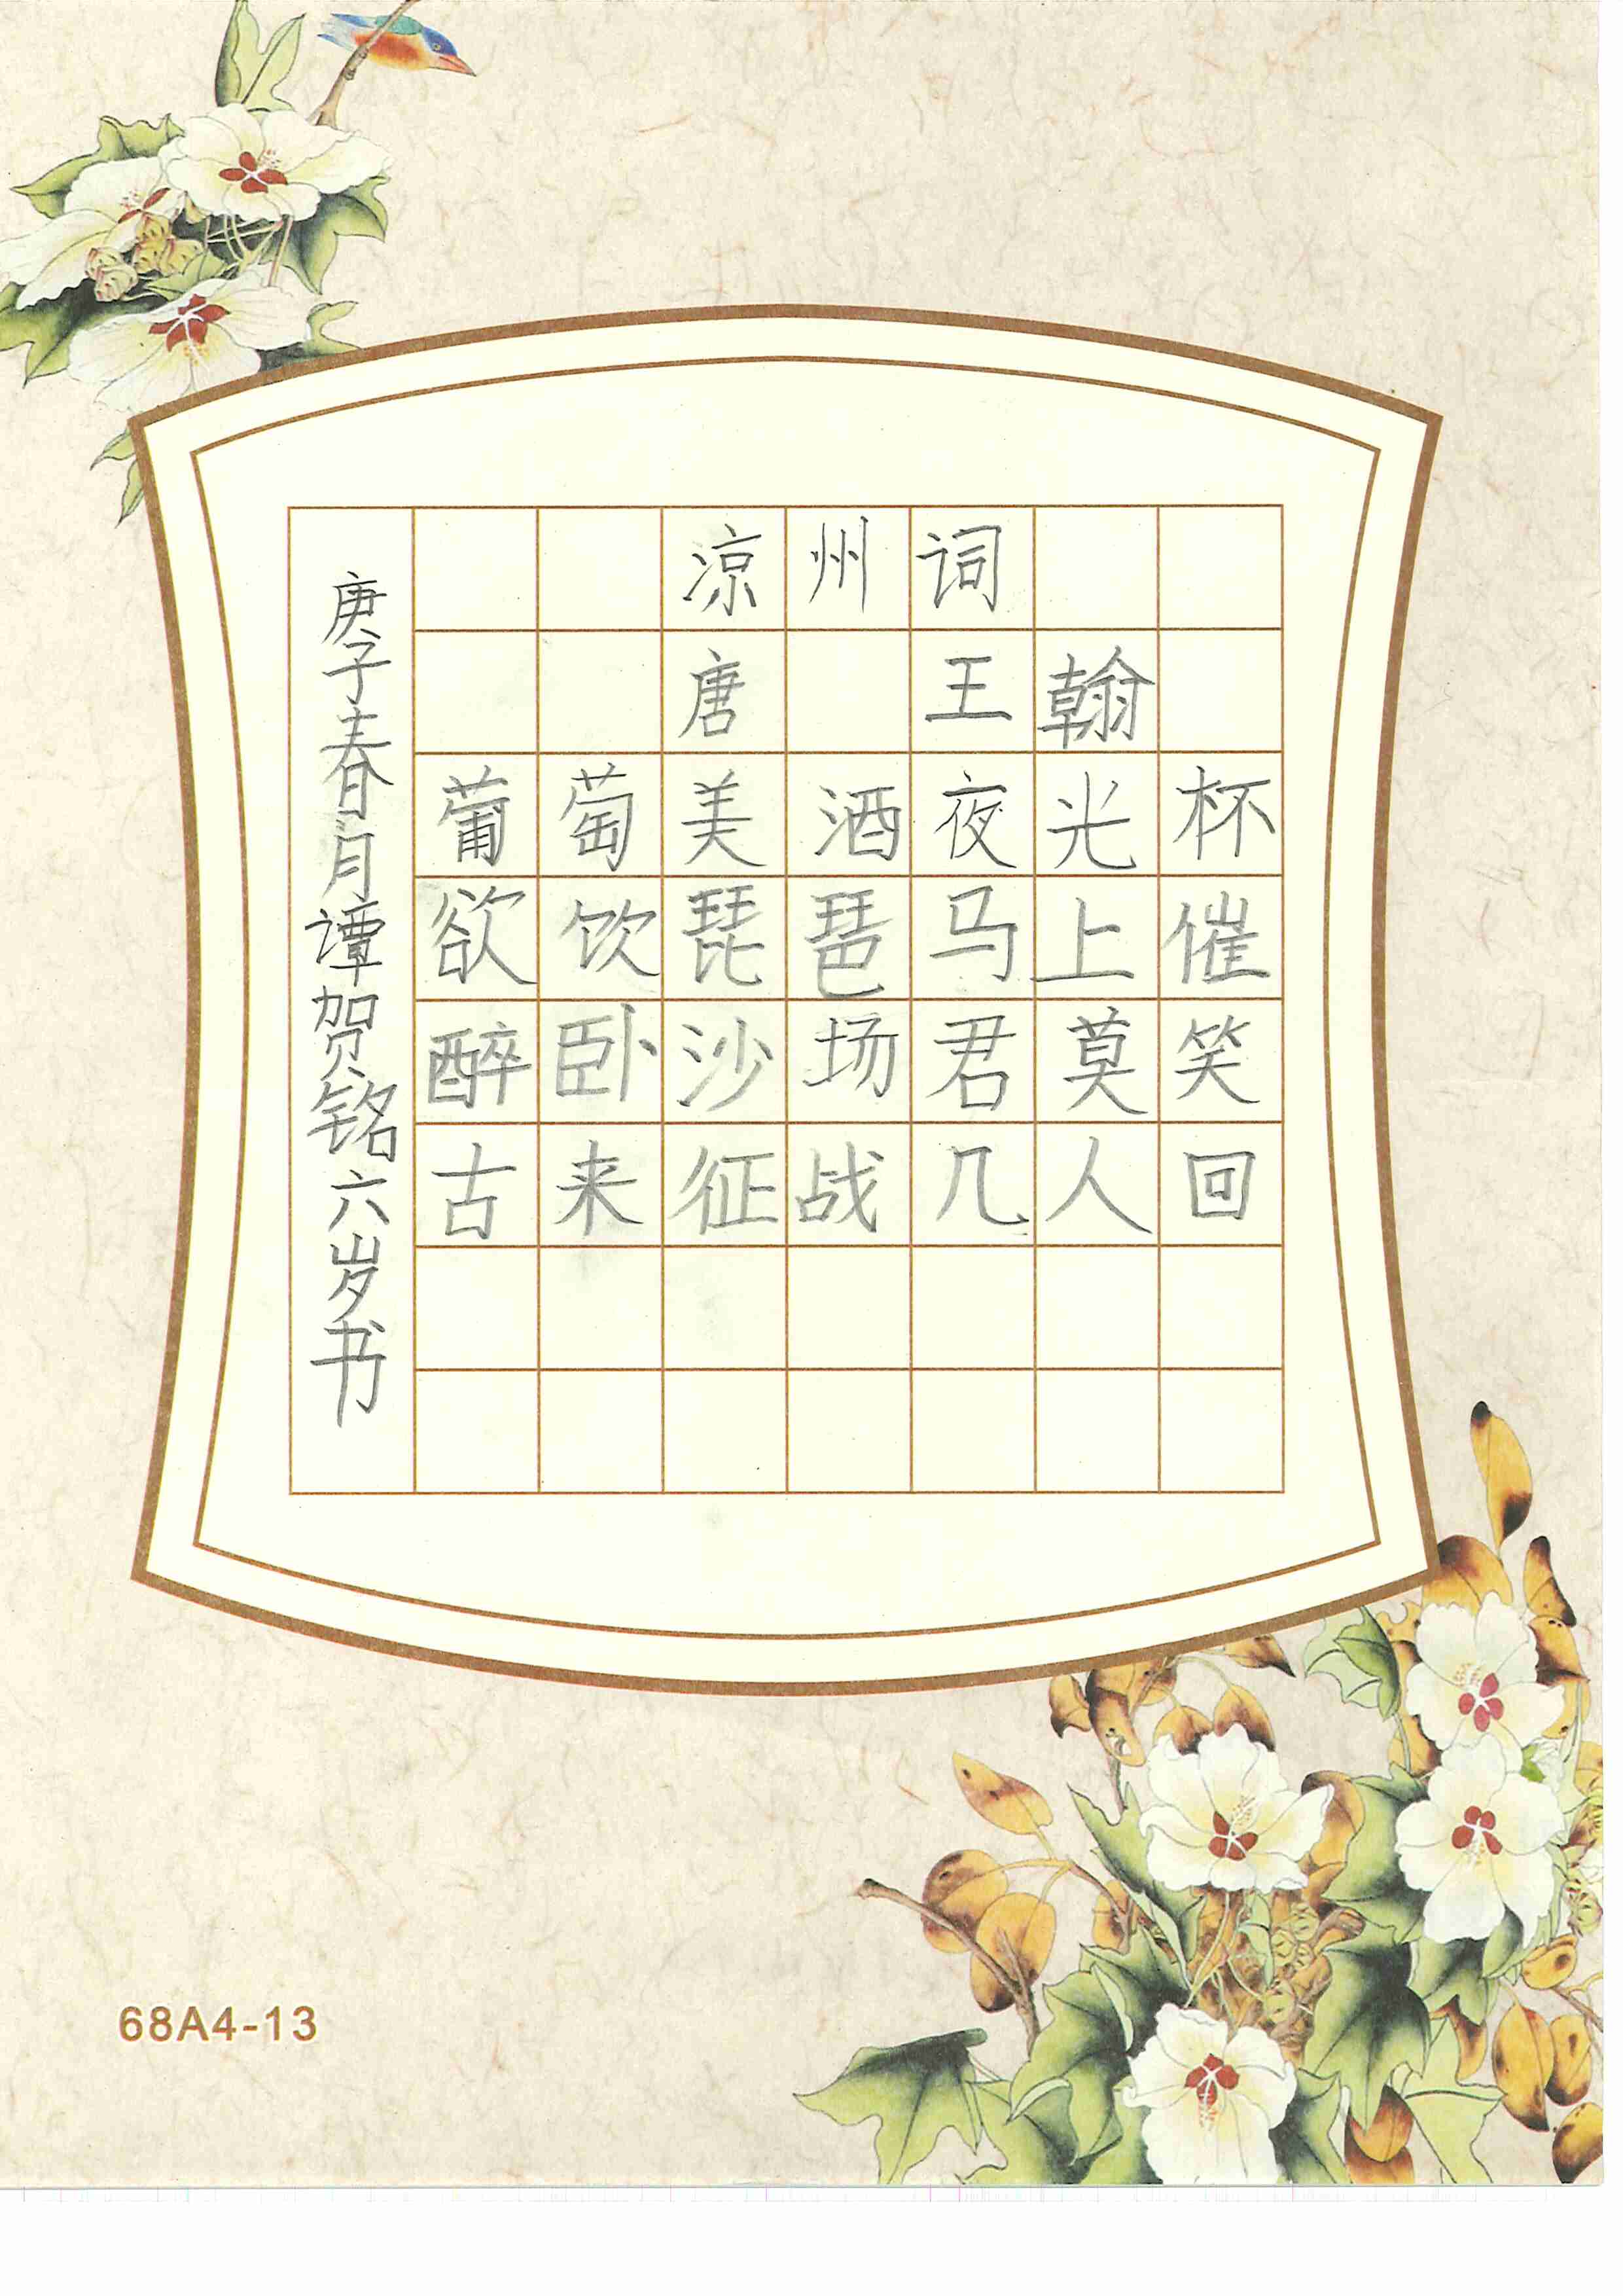 凉州词
唐 王翰
葡萄美酒夜光杯
欲饮琵琶马上催
醉卧沙场君莫笑
古来征战几人回
庚子春月谭贺铭六岁书
68A4-13